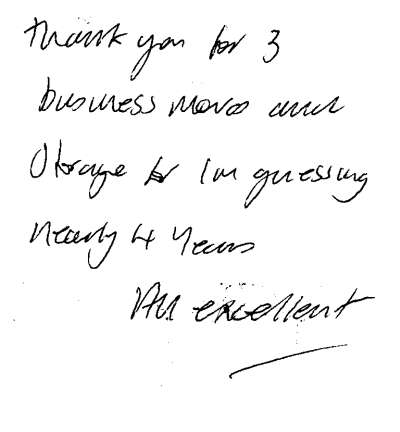 Thank you for 3
business moves and
Storage for Im guessing
nearly 4 years
All excellent